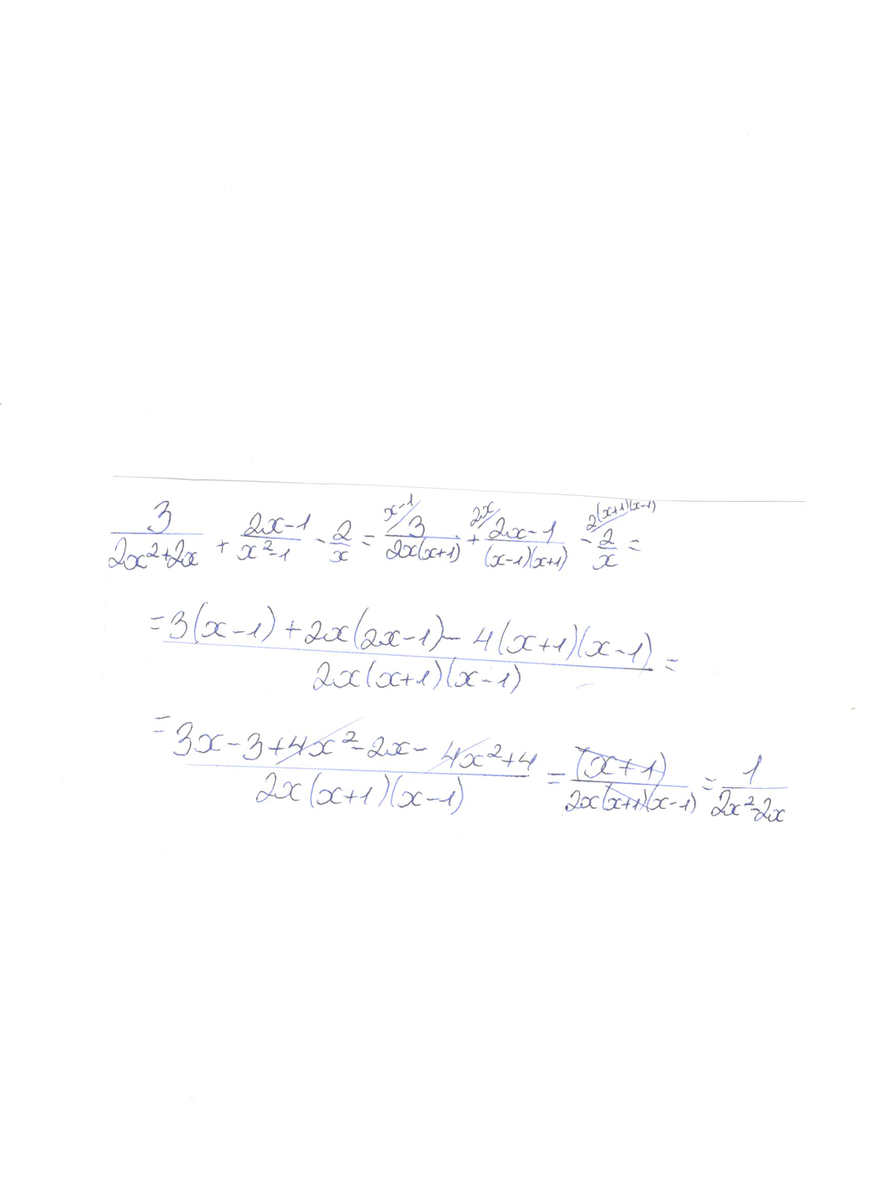 3/(2x²+2x) + (2x-1)/(x²-1) - 2/x = x-1/ 3/(2x(x+1)) + 2x/ (2x-1)/((x-1)(x+1)) - 2(x+1)(x-1)/ 2/x =
= (3(x-1)+2x(2x-1)-4(x+1)(x-1))/(2x(x+1)(x-1)) =
= (3x-3+4x²-2x-4x²+4)/(2x(x+1)(x-1)) = (x+1)/(2x(x+1)(x-1)) = 1/(2x²-2x)